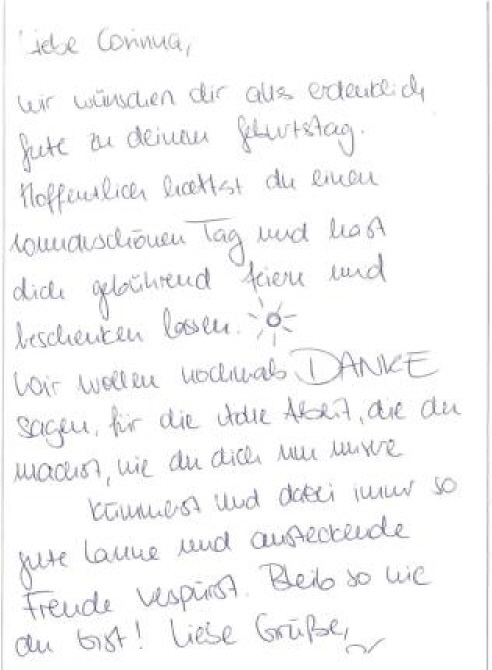 Liebe Corinna,
wir wünschen dir alles erdenklich
gute zu deinem Geburtstag.
Hoffentlich hattest du einen
wunderschönen Tag und hast
dich gebührend feiern und
beschenken lassen.
Wir wollen nochmals DANKE
sagen, für die tolle Arbeit, die du
machst, wie du dich um unsere
kümmerst und dabei immer so
gute Laune und ansteckende
Freude versprühst. Bleib so wie
du bist! Liebe Grüße,